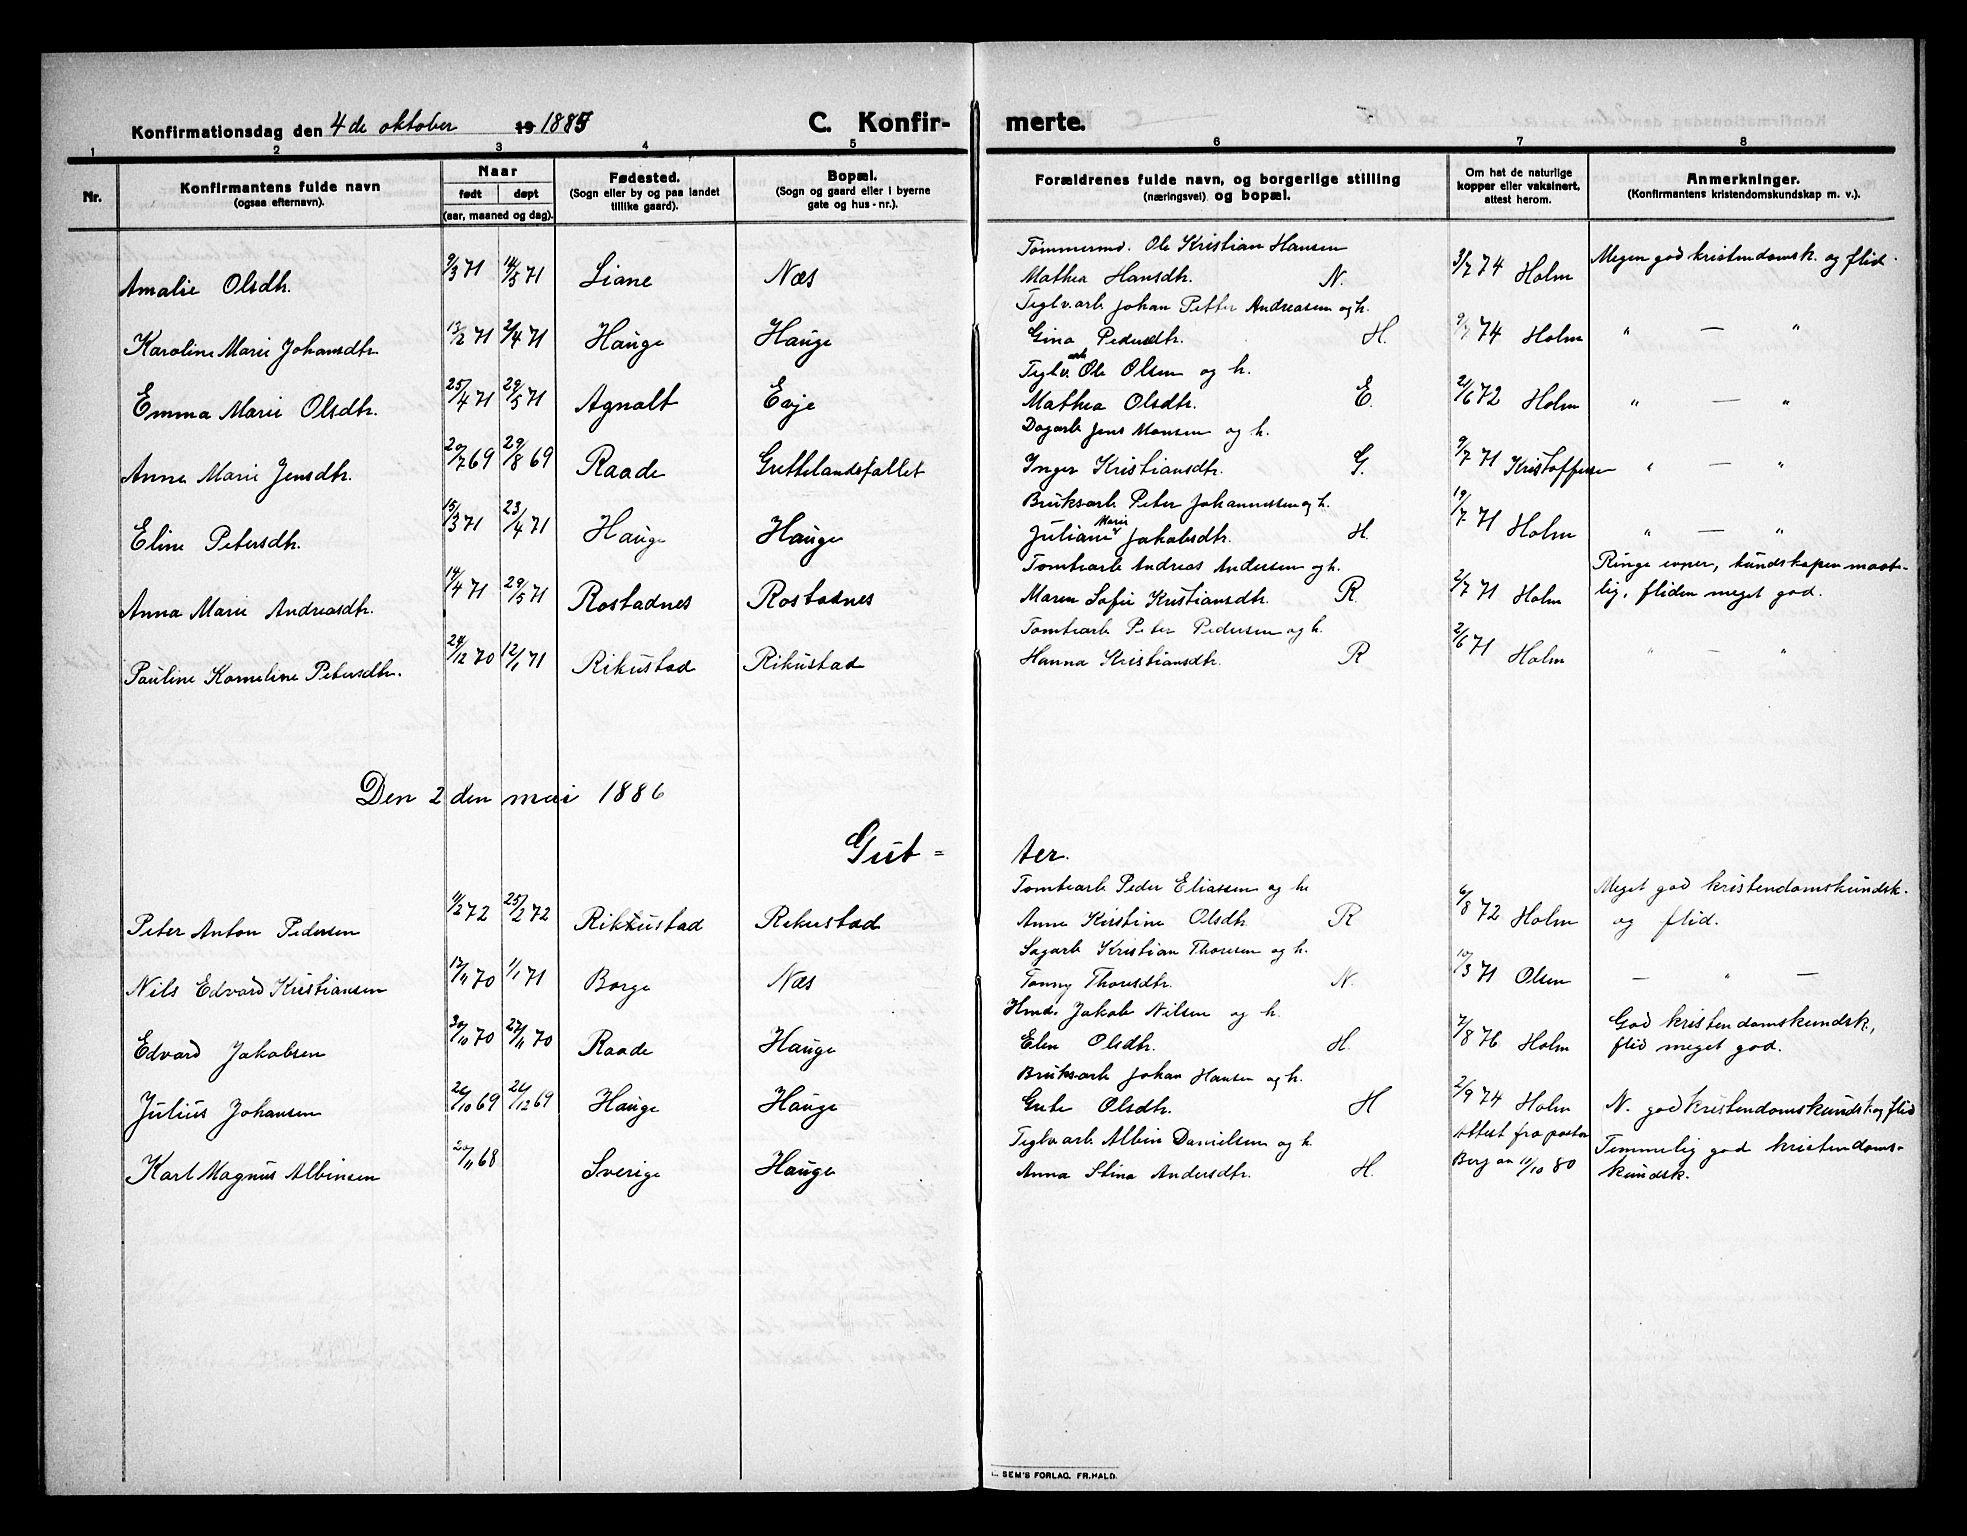 Konfirmationsdag den 4de oktober 19 1885 C. Konfir-
merte.
1 2 3 4 5 6 7 8
Nr.
Konfirmantens fulde navn
(ogsaa efternavn).
Naar
født døpt
(aar, maaned og dag).
Fødested.
(Sogn eller by og paa landet
tillike gaard).
Bopæl.
(Sogn og gaard eller i byerne
gate og hus-nr.).
Forældrenes fulde navn, og borgerlige stilling
(næringsvei) og bopæl.
Om hat de naturlige
kopper eller vaksinert,
attest herom.
Anmerkninger.
(Konfirmantens kristendomskundskap m. v.).
Tømmermd. Ole Kristian Hansen
Amalie Olsdtr. 9/3 71 14/5 71 Liane Næs Mathea Hansdtr. N. 3/7 74 Holm Megen god kristendomsk. og flid.
Teglv.arb Johan Petter Andreasen og h.
Karoline Marie Johansdtr. 13/2 71 2/4 71 Hauge Hauge Gina Pedersdtr. H. 9/7 74 Holm " — "
Teglv. arb Ole Olsen og h.
Emma Marie Olsdtr. 25/4 71 29/5 71 Agnalt Evje Mathea Olsdtr. E. 21/6 72 Holm " — "
Dagarb Jens Monsen og h.
Anne Marie Jensdtr. 20/7 69 29/8 69 Raade Grettelandsfallet Inger Kristiansdtr. G. 9/7 71 Kristoffersen " — "
Bruksarb Peter Johannessen og h.
Eline Petersdtr. 15/3 71 23/4 71 Hauge Hauge Juliane Marie Jakobsdtr. H. 19/7 71 Holm " — "
Tombearb Andreas Andersen og h. Ringe evner, kundskapen maate-
Anna Marie Andreasdtr. 14/4 71 29/5 71 Rostadnes Rostadnes Maren Sofie Kristiansdtr. R 2/7 71 Holm lig, fliden meget god.
Tombearb Peter Pedersen og h.
Pauline Korneline Petersdtr. 24/12 70 12/1 71 Rikustad Rikustad Hanna Kristiansdtr. R 2/6 71 Holm " — "
Den 2den mai 1886
Gut-
ter.
Tombearb Peder Eliassen og h. Meget god kristendomskundsk.
Peter Anton Pedersen 11/2 72 25/2 72 Rikkustad Rekustad Anne Kirstine Olsdtr. R 6/8 72 Holm og flid.
Sagarb Kristian Thoresen og h.
Nils Edvard Kristiansen 17/11 70 1/1 71 Borge Næs Tonny Thoresdtr. N. 10/3 71 Olsen — " —
Hmd. Jakob Nilsen og h. God kristendomskundsk,
Edvard Jakobsen 30/10 70 27/11 70 Raade Hauge Elen Olsdtr. H. 7/8 76 Holm flid meget god.
Bruksarb Johan Hansen og h.
Julius Johansen 26/10 69 26/12 69 Hauge Hauge Grete Olsdtr. H 2/9 74 Holm N. god kristendomskundsk og flid
Teglv.arb Albin Danielsen og h. Attest fra pastor Temmelig god kristendoms-
Karl Magnus Albinsen 20/11 68 Sverige Hauge Anna Stina Andersdtr. H. Berg an 11/10 80 kundsk.
SEM'S FORLAG, FR.HALD.